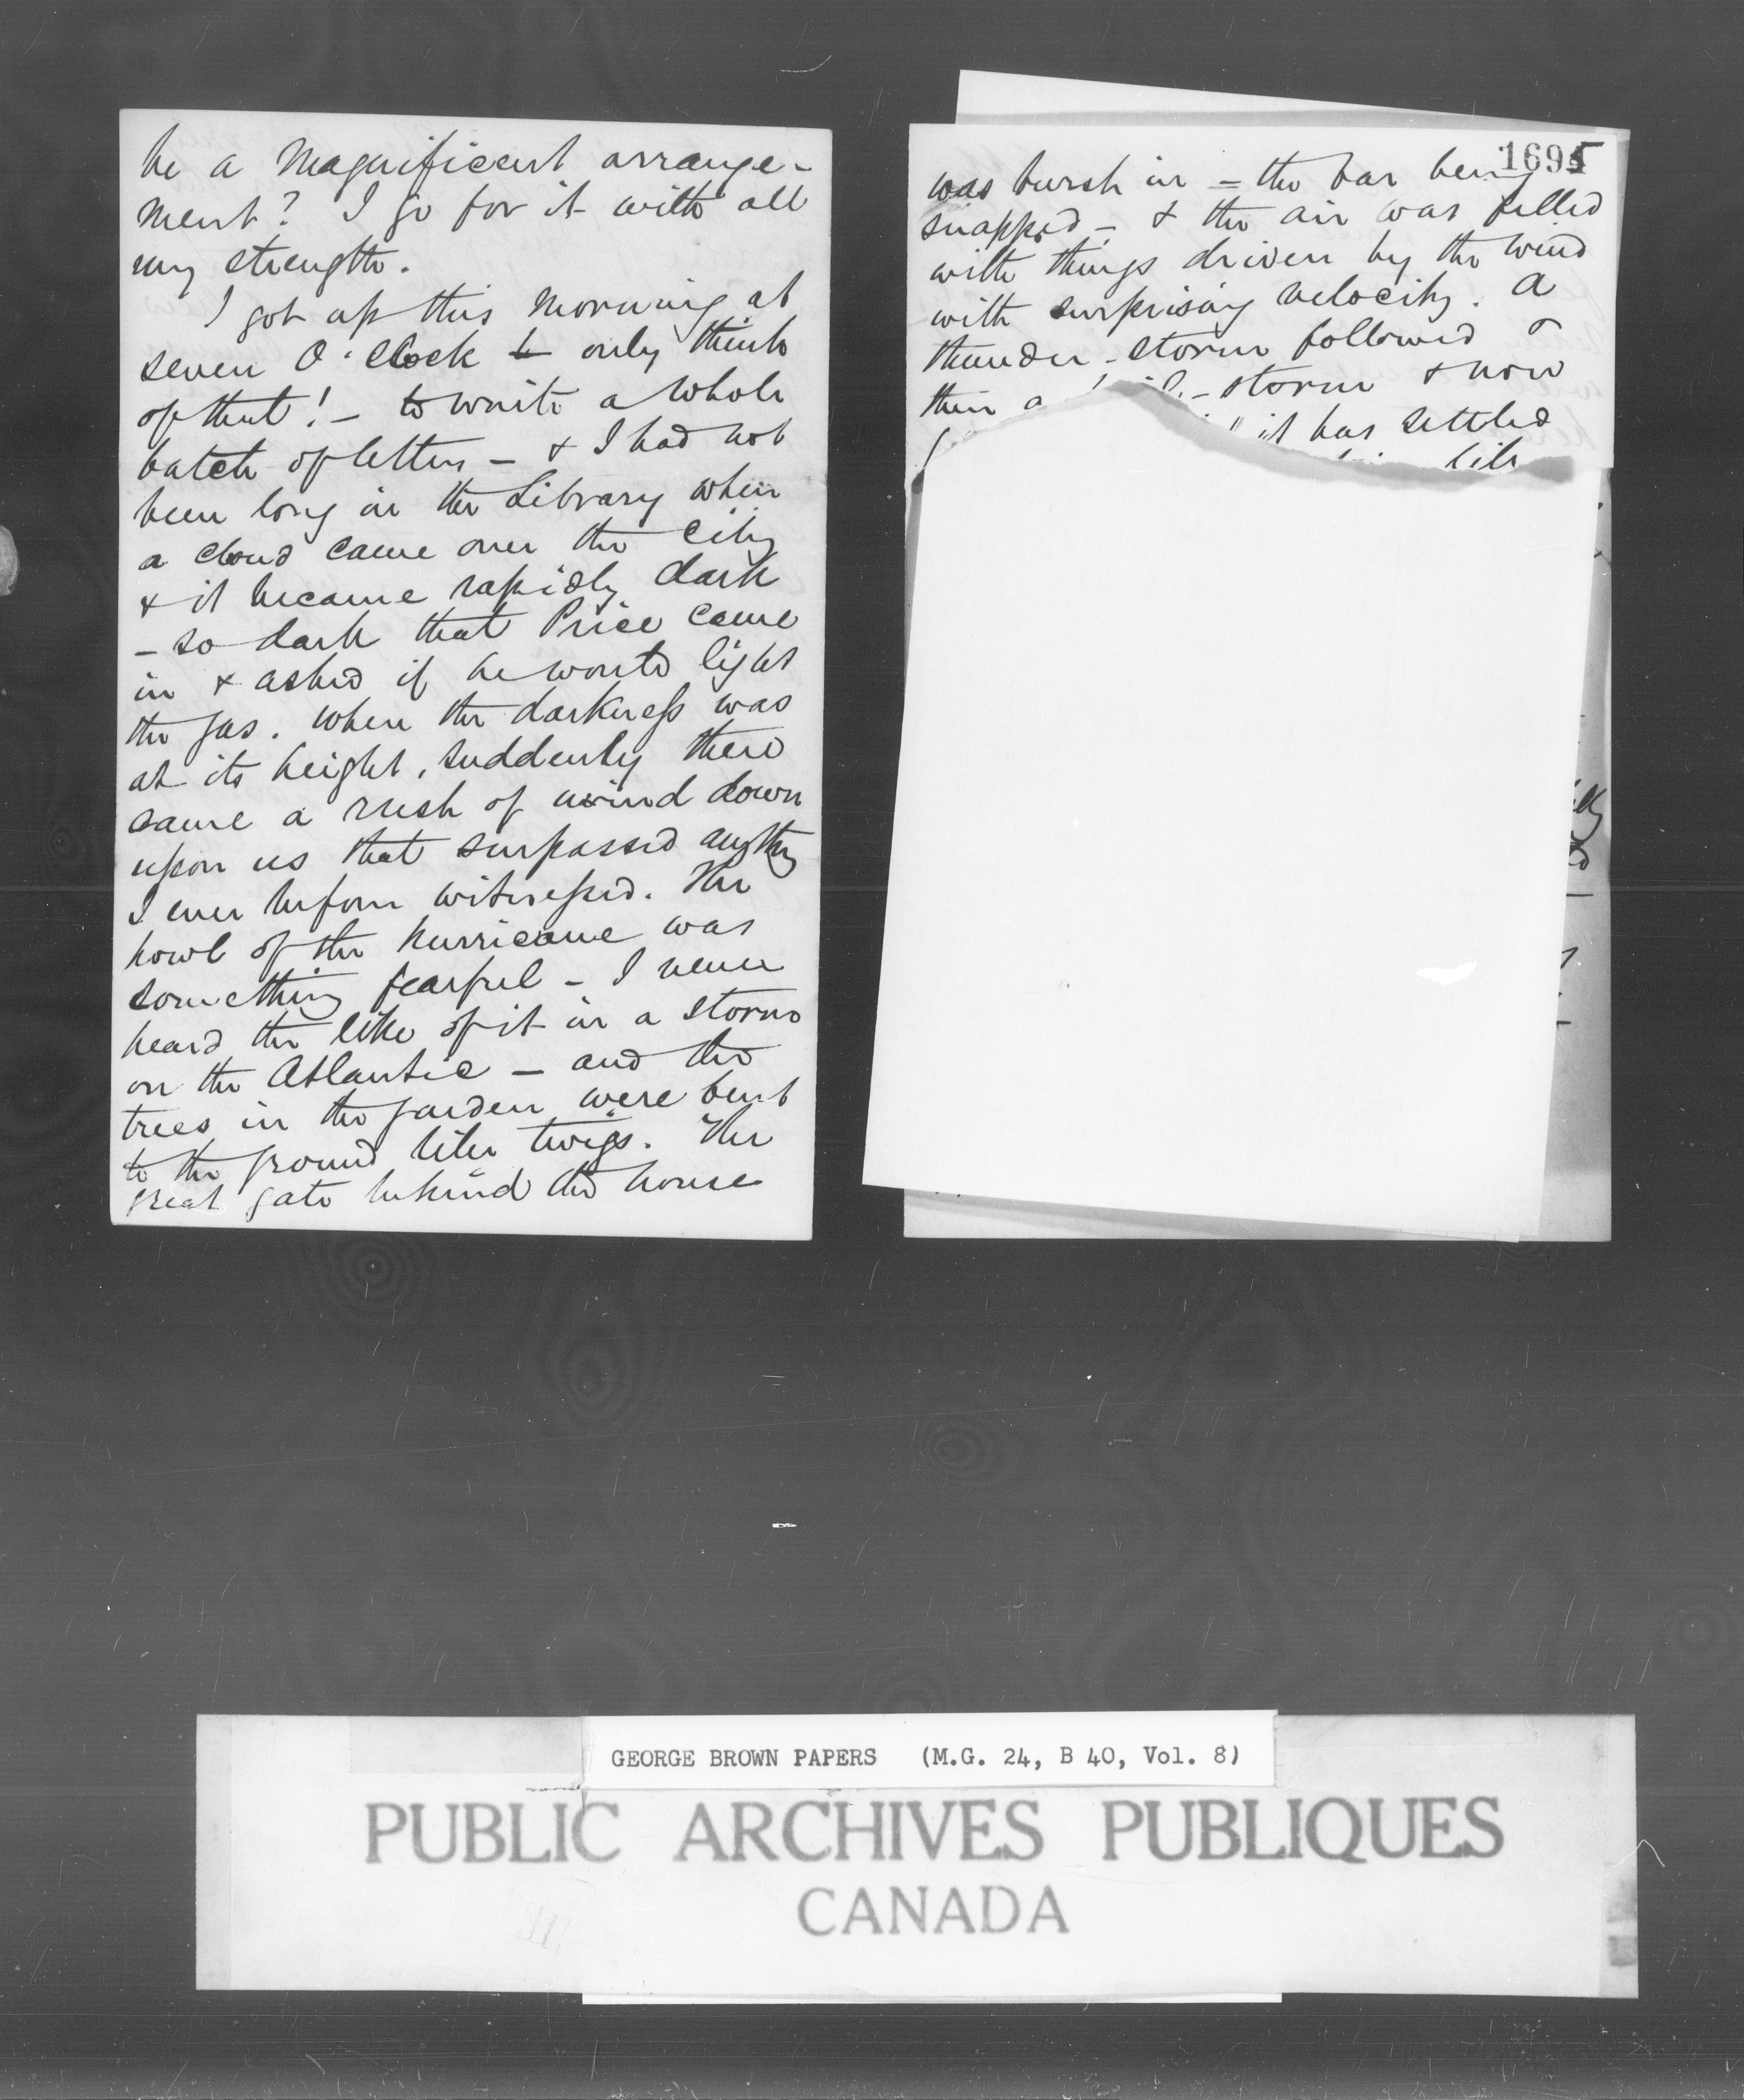 be a magnificent arrange-
ment? I go for it with all
my strength.
I got up this morning at
seven O'clock - only think
of that! - to write a whole
batch of letters - & I had not
been long in the Library when
a cloud came over the City
& it became rapidly dark
- so dark that Price came
in & asked if he would light
the gas. When the darkness was
at its height, suddenly there
came a rush of wind down
upon us that surpassed anything
I ever before witnessed. The
howl of the hurricane was
something fearful - I never
heard the like of it in a storm
on the Atlantic - and the
trees in the garden were bent
to the ground like twigs. The
great gate behind the house
1695
was burst in - the bar being
snapped - & the air was filled
with things driven by the wind
with surprising velocity. A
thunder-storm followed &
then a - storm & now
it has settled
GEORGE BROWN PAPERS (M.G. 24, B 40, Vol. 8)
PUBLIC ARCHIVES PUBLIQUES
CANADA